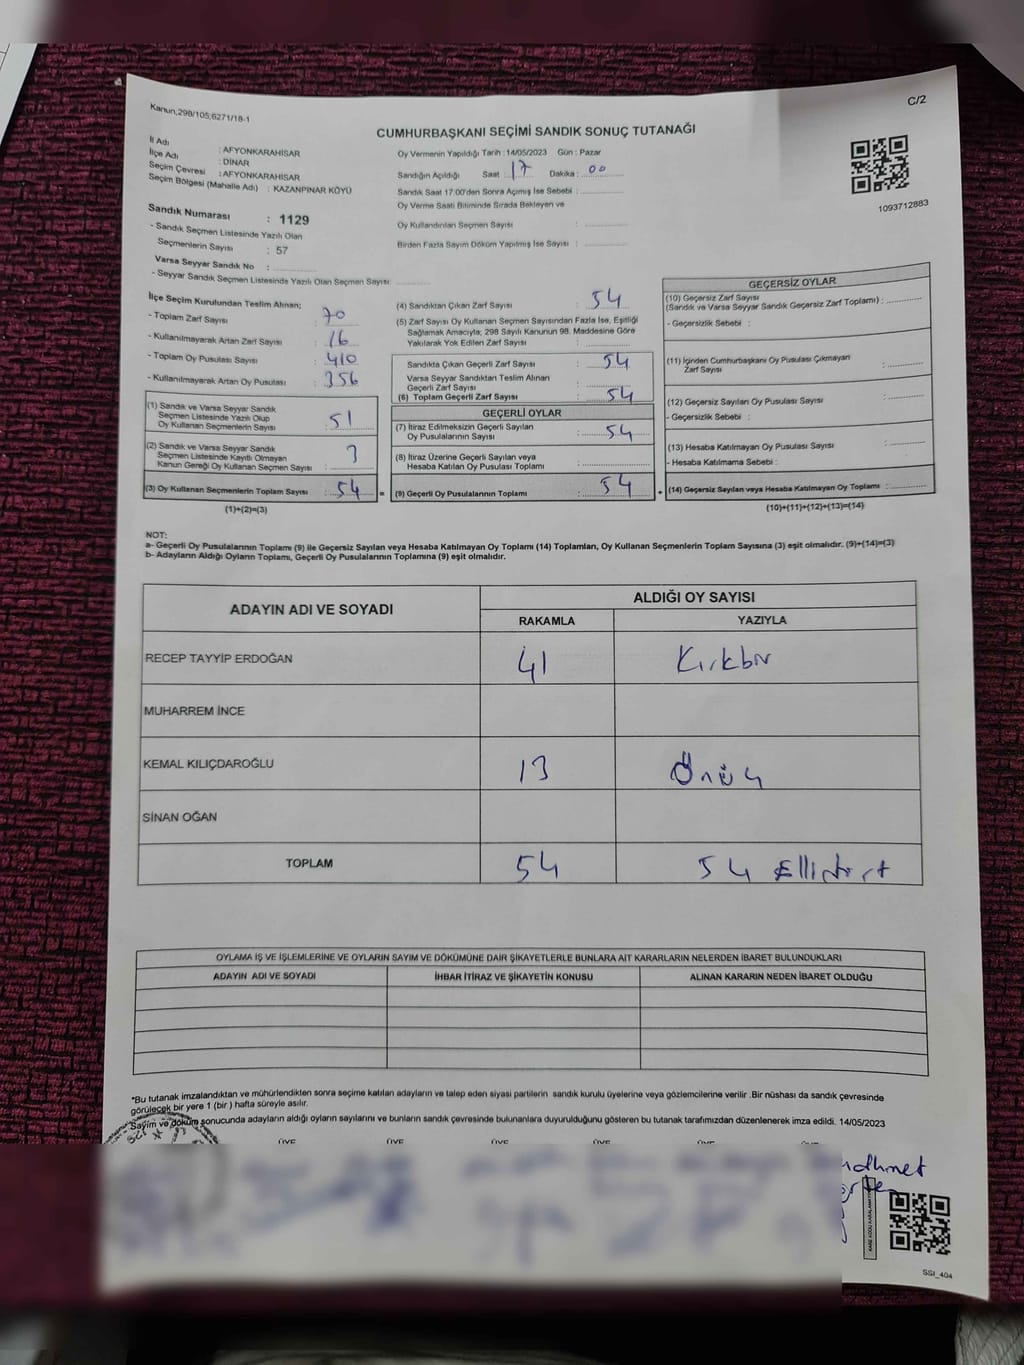 Kanun;298/105;6271/18-1
C/2
CUMHURBAŞKANI SEÇİMİ SANDIK SONUÇ TUTANAĞI
İl Adı : AFYONKARAHİSAR
İlçe Adı : DİNAR
Seçim Çevresi : AFYONKARAHİSAR
Seçim Bölgesi (Mahalle Adı) : KAZANPINAR KÖYÜ
Oy Vermenin Yapıldığı Tarih : 14/05/2023 Gün : Pazar
Sandığın Açıldığı Saat : 17 Dakika : 00
Sandık Saat 17:00'den Sonra Açımış İse Sebebi :
Oy Verme Saati Bitiminde Sırada Bekleyen ve
Oy Kullandırılan Seçmen Sayısı :
Birden Fazla Sayım Döküm Yapılmış İse Sayısı :
1093712883
Sandık Numarası : 1129
- Sandık Seçmen Listesinde Yazılı Olan
Seçmenlerin Sayısı : 57
Varsa Seyyar Sandık No :
- Seyyar Sandık Seçmen Listesinde Yazılı Olan Seçmen Sayısı:
İlçe Seçim Kurulundan Teslim Alınan;
- Toplam Zarf Sayısı : 70
- Kullanılmayarak Artan Zarf Sayısı : 16
- Toplam Oy Pusulası Sayısı : 410
- Kullanılmayarak Artan Oy Pusulası : 356
(1) Sandık ve Varsa Seyyar Sandık
Seçmen Listesinde Yazılı Olup
Oy Kullanan Seçmenlerin Sayısı : 51
(2) Sandık ve Varsa Seyyar Sandık
Seçmen Listesinde Kayıtlı Olmayan
Kanun Gereği Oy Kullanan Seçmen Sayısı : 3
(3) Oy Kullanan Seçmenlerin Toplam Sayısı : 54 =
(1)+(2)=(3)
(4) Sandıktan Çıkan Zarf Sayısı : 54
(5) Zarf Sayısı Oy Kullanan Seçmen Sayısından Fazla İse, Eşitliği
Sağlamak Amacıyla; 298 Sayılı Kanunun 98. Maddesine Göre
Yakılarak Yok Edilen Zarf Sayısı :
Sandıkta Çıkan Geçerli Zarf Sayısı : 54
Varsa Seyyar Sandıktan Teslim Alınan
Geçerli Zarf Sayısı :
(6) Toplam Geçerli Zarf Sayısı : 54
GEÇERLİ OYLAR
(7) İtiraz Edilmeksizin Geçerli Sayılan
Oy Pusulalarının Sayısı : 54
(8) İtiraz Üzerine Geçerli Sayılan veya
Hesaba Katılan Oy Pusulası Toplamı :
(9) Geçerli Oy Pusulalarının Toplamı : 54 +
GEÇERSİZ OYLAR
(10) Geçersiz Zarf Sayısı
(Sandık ve Varsa Seyyar Sandık Geçersiz Zarf Toplamı) :
- Geçersizlik Sebebi :
(11) İçinden Cumhurbaşkanı Oy Pusulası Çıkmayan
Zarf Sayısı :
(12) Geçersiz Sayılan Oy Pusulası Sayısı :
- Geçersizlik Sebebi :
(13) Hesaba Katılmayan Oy Pusulası Sayısı :
- Hesaba Katılmama Sebebi :
(14) Geçersiz Sayılan veya Hesaba Katılmayan Oy Toplamı :
(10)+(11)+(12)+(13)=(14)
NOT:
a- Geçerli Oy Pusulalarının Toplamı (9) ile Geçersiz Sayılan veya Hesaba Katılmayan Oy Toplamı (14) Toplamları, Oy Kullanan Seçmenlerin Toplam Sayısına (3) eşit olmalıdır. (9)+(14)=(3)
b- Adayların Aldığı Oyların Toplamı, Geçerli Oy Pusulalarının Toplamına (9) eşit olmalıdır.
ADAYIN ADI VE SOYADI
ALDIĞI OY SAYISI
RAKAMLA YAZIYLA
RECEP TAYYİP ERDOĞAN 41 Kırkbir
MUHARREM İNCE
KEMAL KILIÇDAROĞLU 13 Önüç
SİNAN OĞAN
TOPLAM 54 54 Ellidört
OYLAMA İŞ VE İŞLEMLERİNE VE OYLARIN SAYIM VE DÖKÜMÜNE DAİR ŞİKAYETLERLE BUNLARA AİT KARARLARIN NELERDEN İBARET BULUNDUKLARI
ADAYIN ADI VE SOYADI İHBAR İTİRAZ VE ŞİKAYETİN KONUSU ALINAN KARARIN NEDEN İBARET OLDUĞU
*Bu tutanak imzalandıktan ve mühürlendikten sonra seçime katılan adayların ve talep eden siyasi partilerin sandık kurulu üyelerine veya gözlemcilerine verilir .Bir nüshası da sandık çevresinde
görülecek bir yere 1 (bir ) hafta süreyle asılır.
Sayım ve döküm sonucunda adayların aldığı oyların sayılarını ve bunların sandık çevresinde bulunanlara duyurulduğunu gösteren bu tutanak tarafımızdan düzenlenerek imza edildi. 14/05/2023
ÜYE ÜYE ÜYE ÜYE ÜYE ÜYE
SSI_404